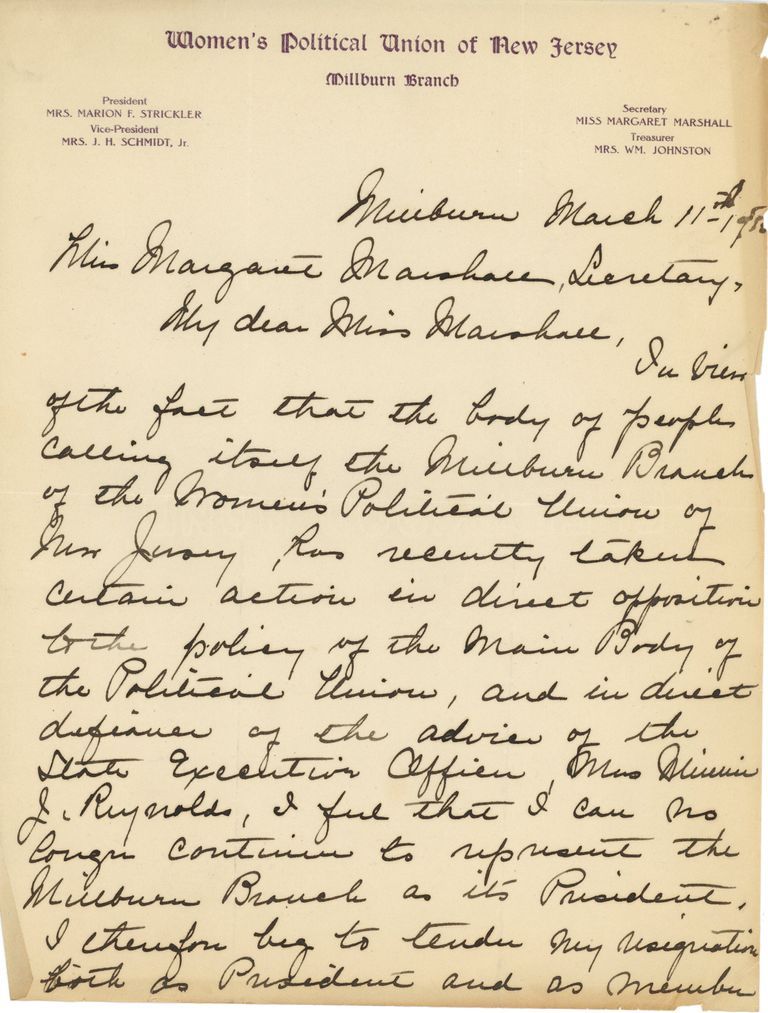 Women's Political Union of New Jersey
Millburn Branch
President
MRS. MARION F. STRICKLER
Vice-President
MRS. J. H. SCHMIDT, Jr.
Secretary
MISS MARGARET MARSHALL
Treasurer
MRS. WM. JOHNSTON
Millburn March 11th
Miss Margaret Marshall, Secretary,
My dear Miss Marshall,
In view
of the fact that the body of people
calling itself the Millburn Branch
of the Women's Political Union of
New Jersey, has recently taken
certain action in direct opposition
to the policy of the Main Body of
the Political Union, and in direct
defiance of the advice of the
State Executive Officer, Mrs Minnie
J. Reynolds, I feel that I can no
longer continue to represent the
Millburn Branch as its President.
I therefore beg to tender my resignation
both as President and as member